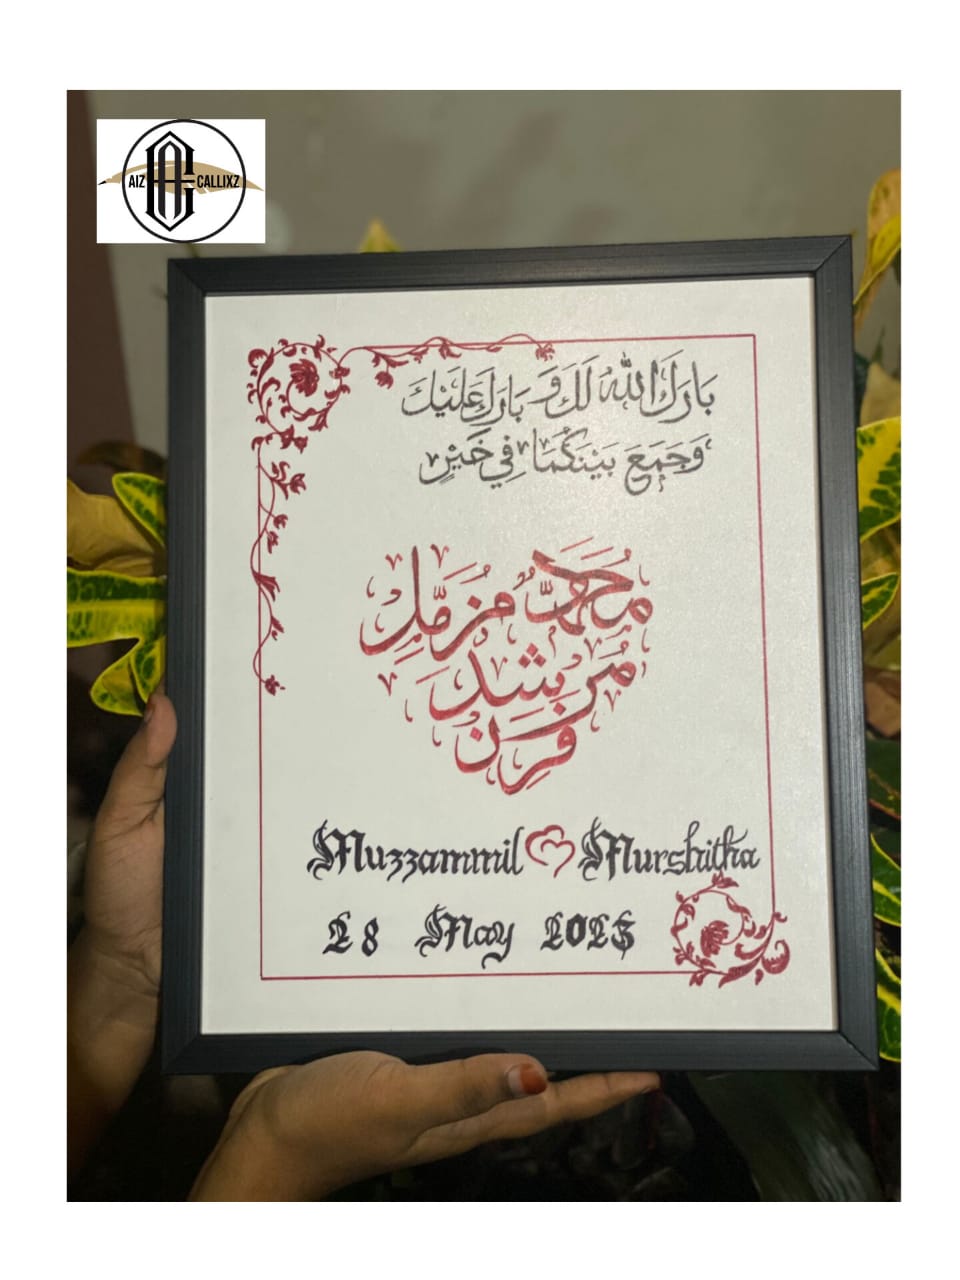 AIZ CALLIXZ
بَارَكَ اللّٰهُ لَكَ وَ بَارَكَ عَلَيْكَ
وَجَمَعَ بَيْنَكُمَا فِي خَيْرٍ
مُحَمَّد مُزَمِّل
مُرْشِدَ
قرن
Muzzammil Murshitha
28 May 2023